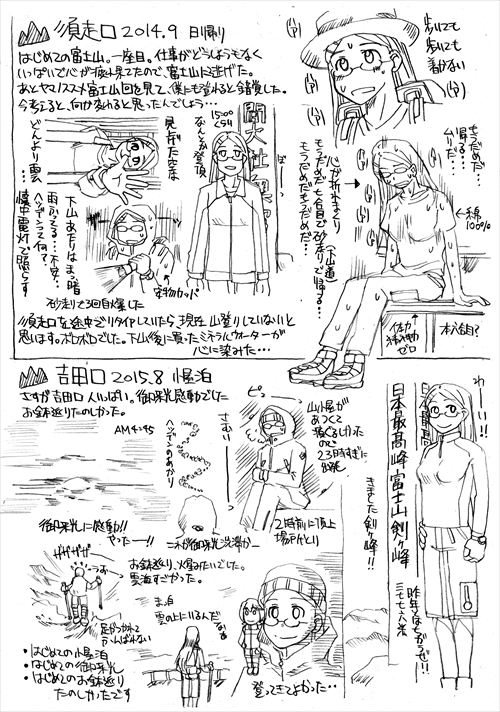 須走口 2014.9 日帰り
はじめての富士山。一座目。仕事がどうしようもなく
いっぱいで心が疲れ果てたので、富士山に逃げた。
あとヤマノススメ富士山回を見て、僕にも登れると錯覚した。
今考えると、何が変わると思ったんでしょう…
歩いても
歩いても
着かない
もうだめだ…
帰る…
ムリだ…
心が折れまくり
もうだめだと合言で砂走りで帰る…
もうだめだもうだめだ…
(下山道)
←綿
100%
本八合目?
ゼロ
1500
くらい
なんとか登頂
見よこの雄大な
どんより雲
下山あたりはまっ暗
雨ふってる…不安…
ヘッデンって何?
懐中電灯で照らす
砂走りで3回自爆した
須走口を途中でリタイヤしていたら、現在山登りしていないと
思います。ボロボロでした。下山後に買ったミネラルウォーターが
心に染みた…
吉田口 2015.8 小屋泊
さすが吉田口 人いっぱい。御来光感動でした
お鉢巡りたのしかった。
AM4:45
ヘッデンのあかり
さむい
ピュー
山小屋が
あつくて
寝ぐるしかった
ので
23時すぎに
出発
2時前に頂上
場所とり
御来光に感動!!
やったー!!
これが御来光渋滞か…
わーい!!
日本最高峰富士山剣ヶ峰
きました剣ヶ峰!!
昨年とはちがうぜ!!
三七七六米
ザザザザ
お鉢巡り、火星みたいでした。
雲海すごかった。
足がつかれて
ふんばれない
雲の上にいるんだ
登ってきてよかった…
・はじめての小屋泊
・はじめての御来光
・はじめてのお鉢巡り
たのしかったです